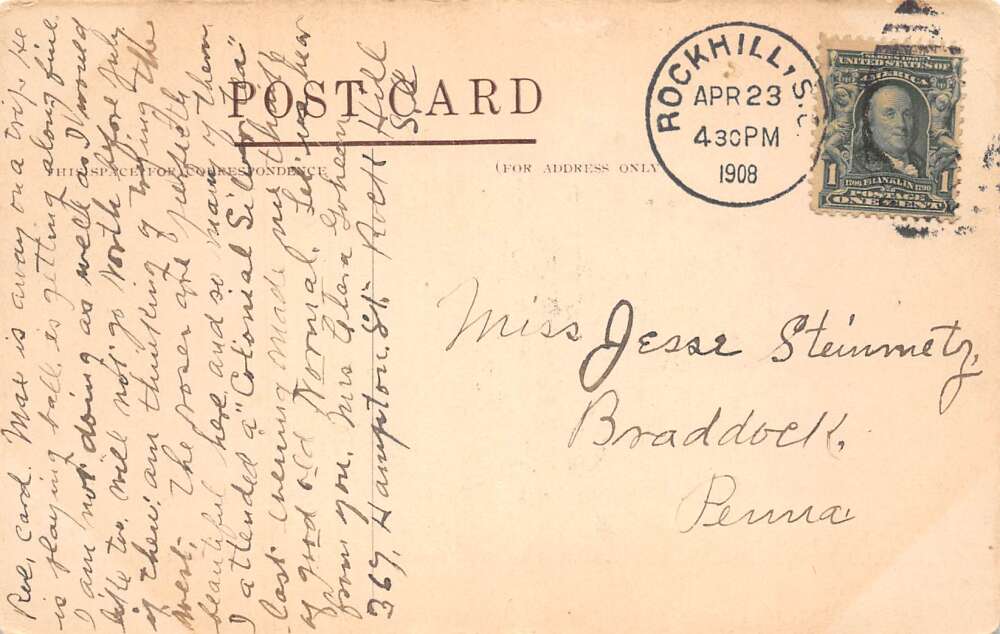 POST CARD
THIS SPACE FOR CORRESPONDENCE
(FOR ADDRESS ONLY
ROCKHILL, S.C.
APR 23
4 30 PM
1908
SERIES 1902
UNITED STATES OF
AMERICA
1706 FRANKLIN 1790
POSTAGE
1 ONE CENT 1
Miss Jesse Steinmetz,
Braddock,
Penna
Rec, card. Mae is away on a trip. He
is playing ball, is getting along fine
I am not doing as well as I would
like to. will not go North before July
if then: am thinking of trying the
west, The roses are perfectly
beautiful here and so many of them
I attended a "Colonial Silver Tea"
last evening made me think
of good old Normal. Let us hear
from you. Mrs Clara
367, Hampton, St. Rock Hill
S.C.